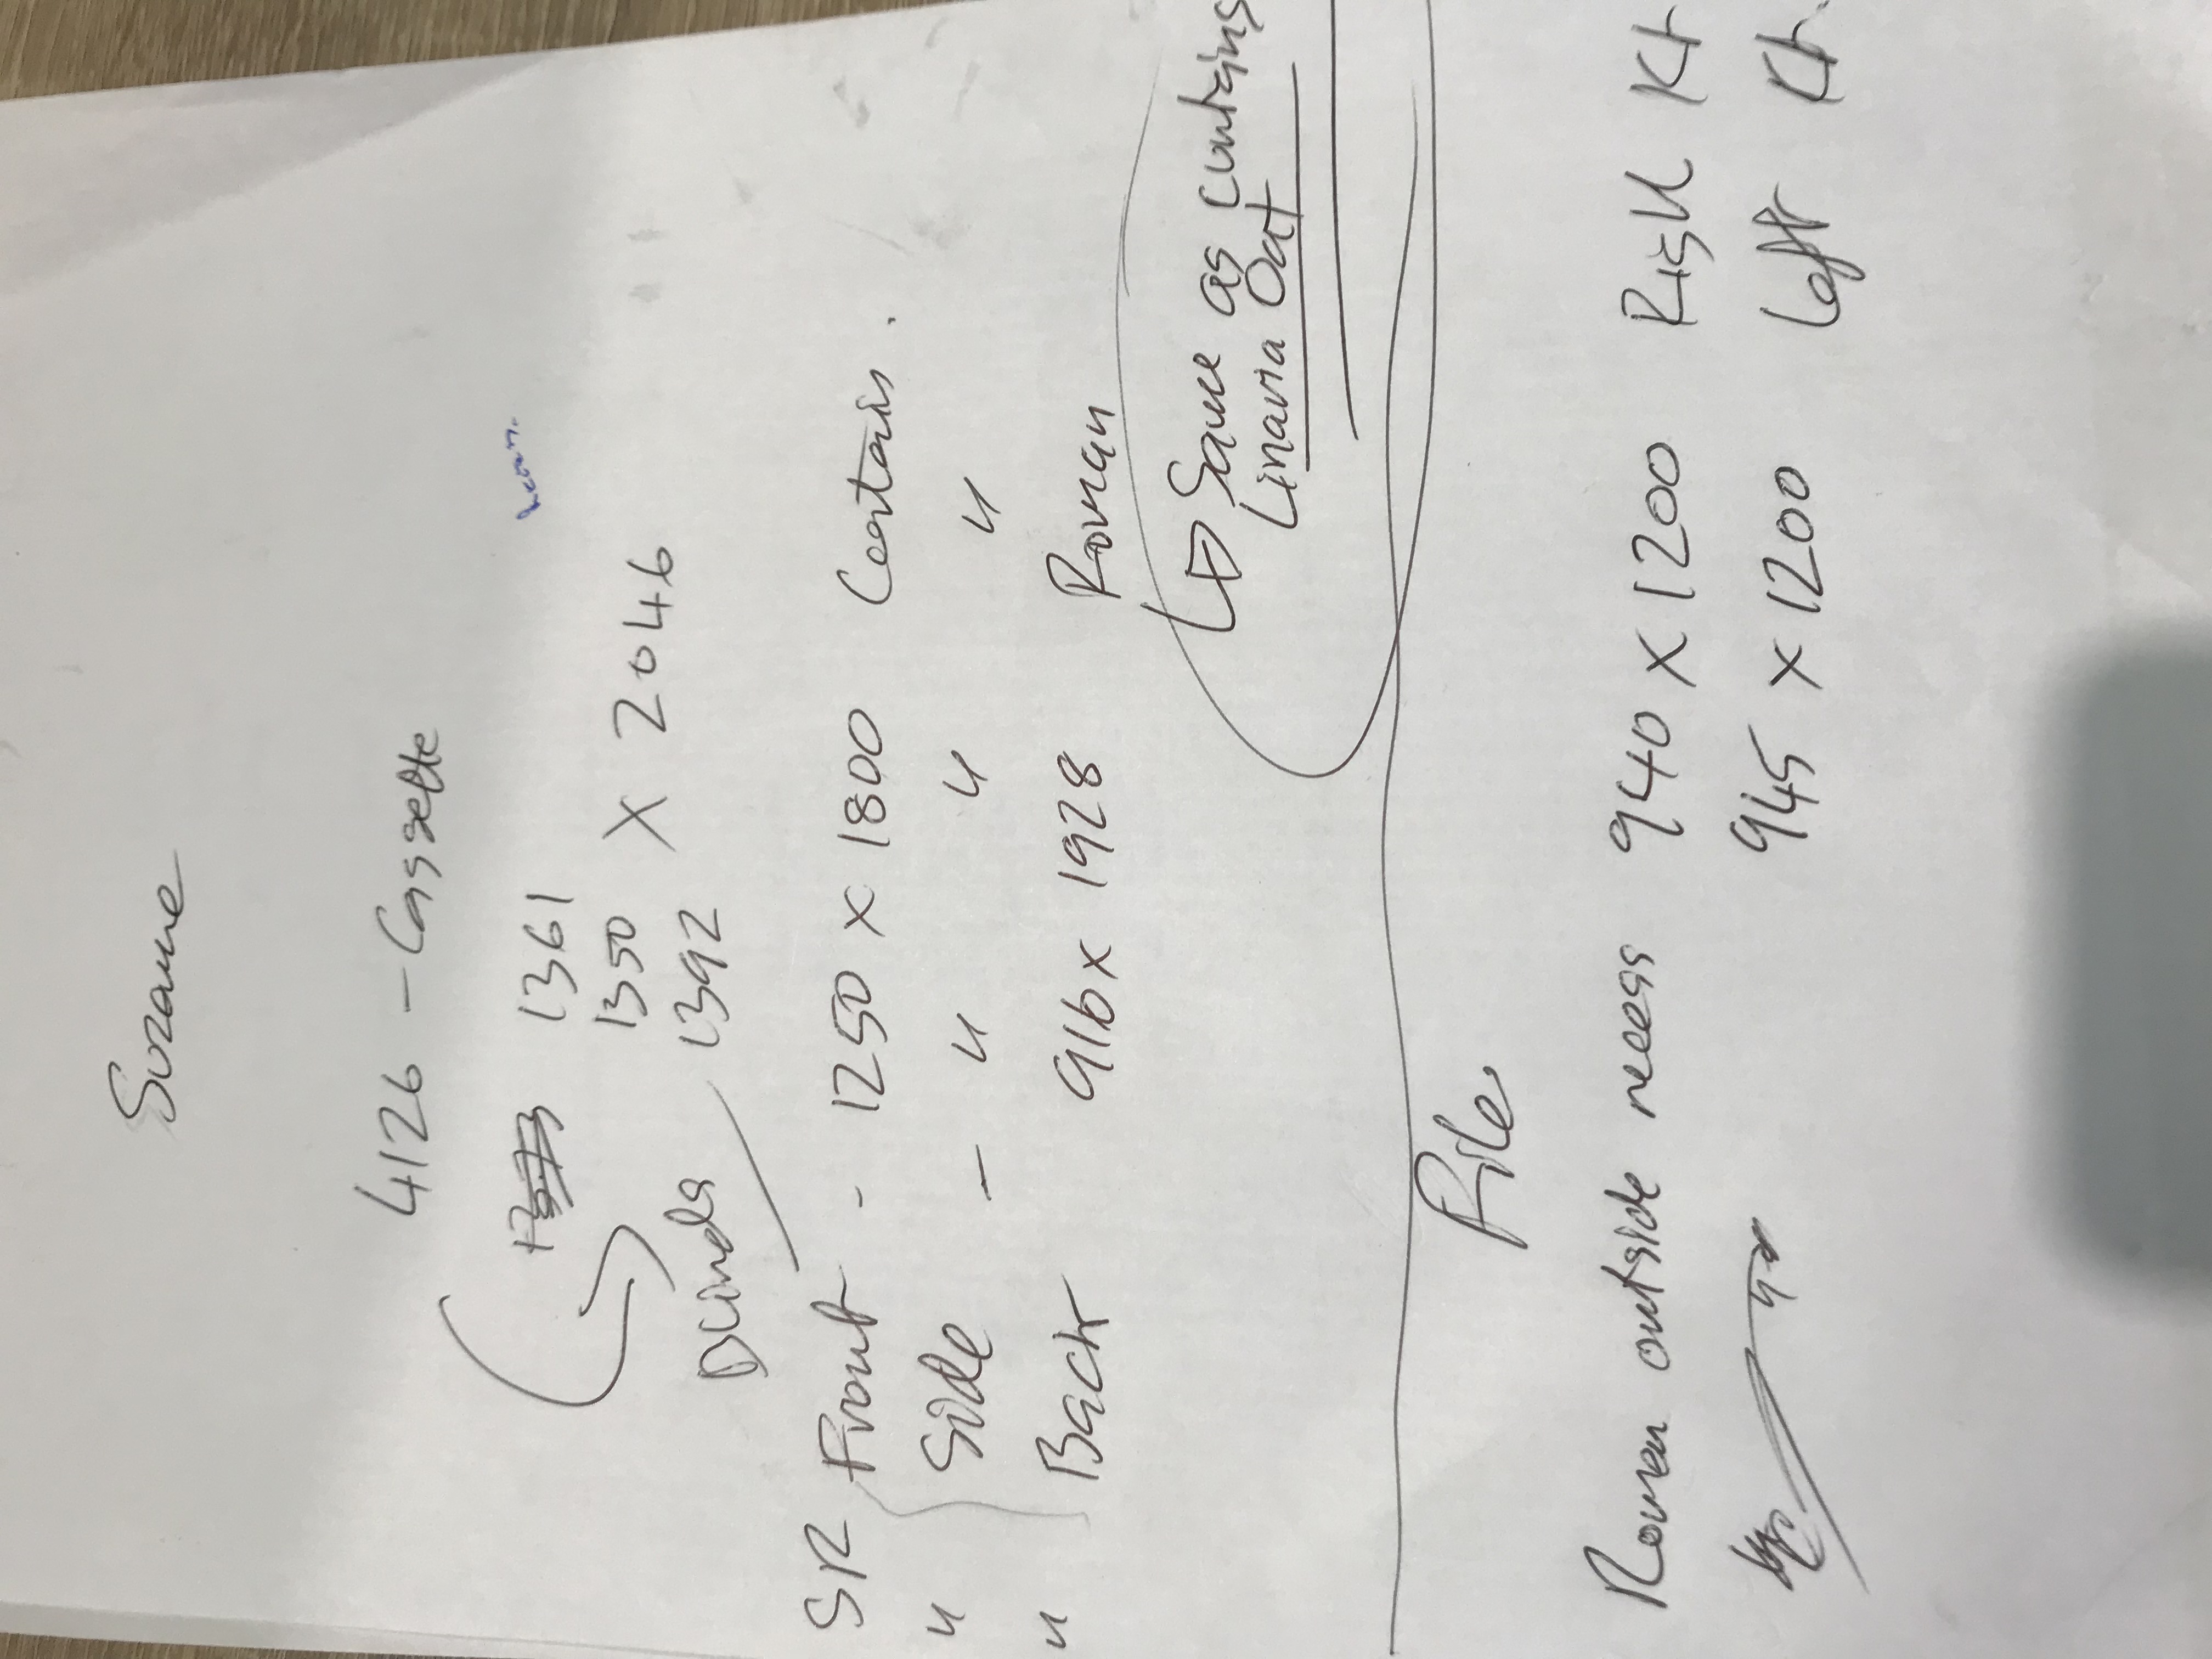 Suzanne
4126 - Cassette
1361
1350 X 2046
1392
Blinds
SR Front - 1250 x 1800 Certains.
" Side - " " "
" Back 916 x 1928 Roman
Same as curtains
Linaria Oat
Roman outside recess 940 x 1200 Right
945 x 1200 Left